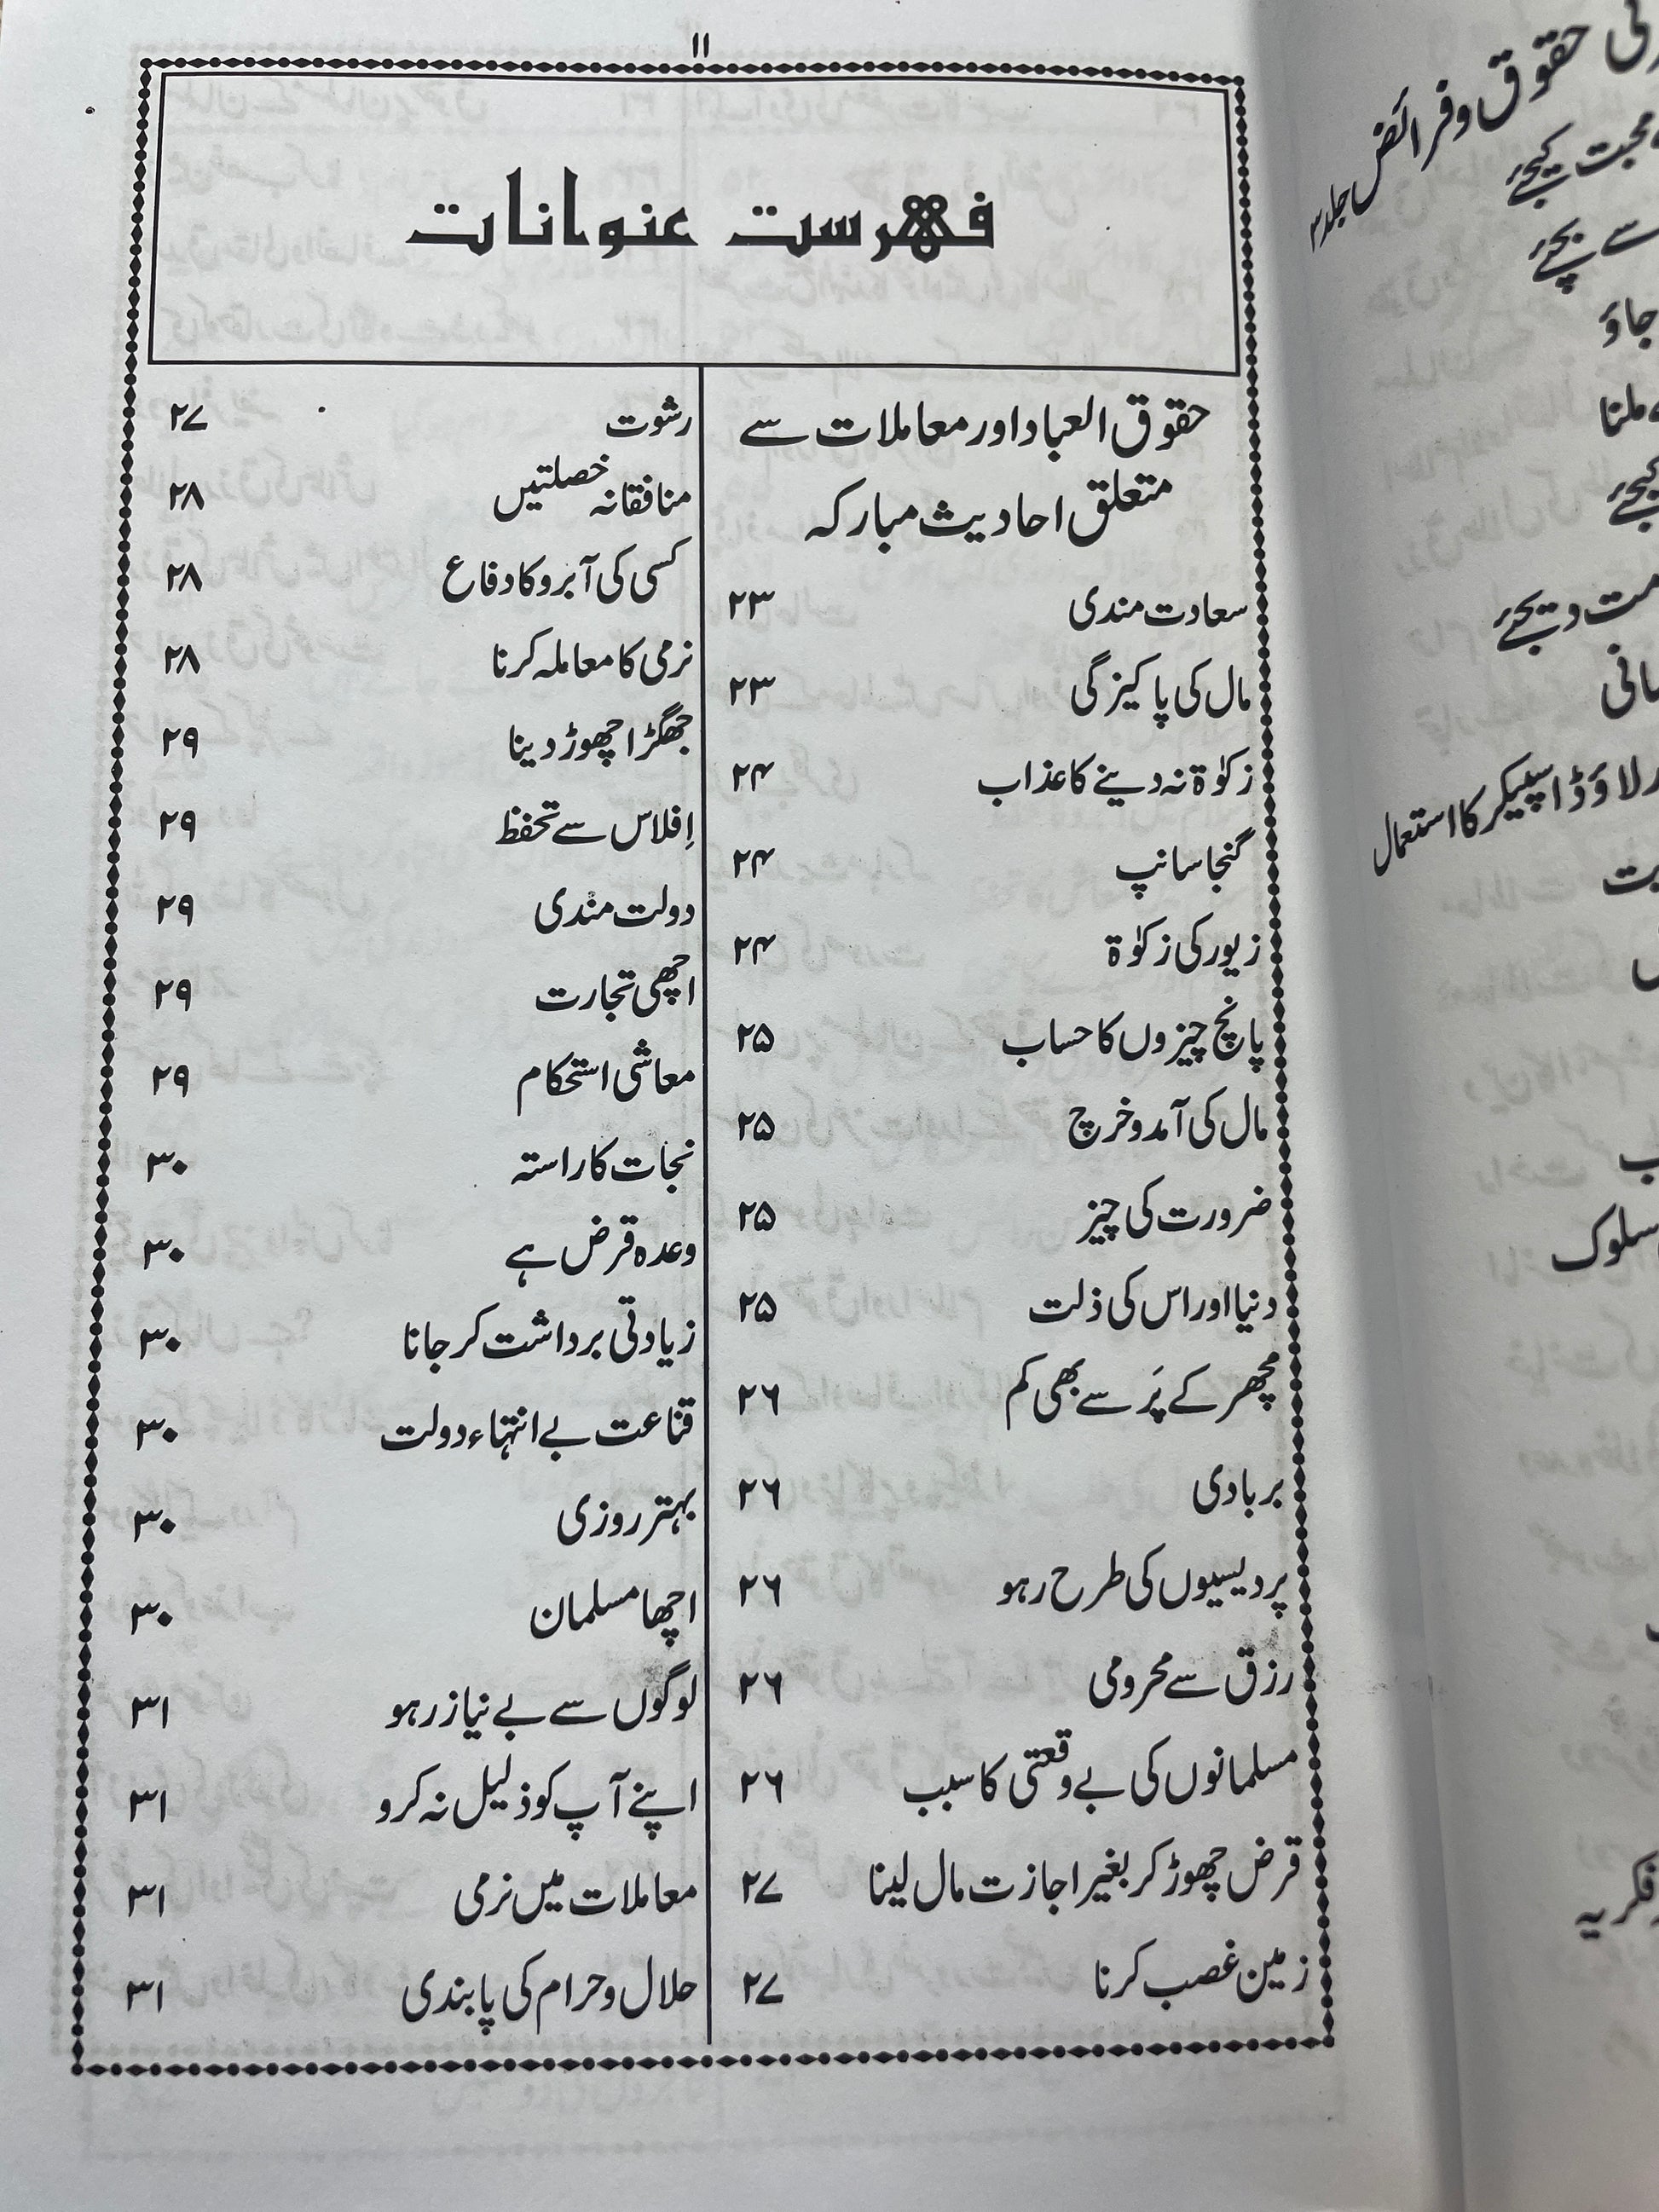 ۱۱
فهرست عنوانات
حقوق العباد اور معاملات سے
متعلق احادیث مبارکہ
سعادت مندی ۲۳
مال کی پاکیزگی ۲۳
زکوٰة نہ دینے کا عذاب ۲۴
گنجا سانپ ۲۴
زیور کی زکوٰة ۲۴
پانچ چیزوں کا حساب ۲۵
مال کی آمد و خرچ ۲۵
ضرورت کی چیز ۲۵
دنیا اور اس کی ذلت ۲۵
مچھر کے پَر سے بھی کم ۲۶
بربادی ۲۶
پردیسیوں کی طرح رہو ۲۶
رزق سے محرومی ۲۶
مسلمانوں کی بے وقعتی کا سبب ۲۶
قرض چھوڑ کر بغیر اجازت مال لینا ۲۷
زمین غصب کرنا ۲۷
رشوت ۲۷
منافقانہ خصلتیں ۲۸
کسی کی آبرو کا دفاع ۲۸
نرمی کا معاملہ کرنا ۲۸
جھگڑا چھوڑ دینا ۲۹
اِفلاس سے تحفظ ۲۹
دولت مندی ۲۹
اچھی تجارت ۲۹
معاشی استحکام ۲۹
نجات کا راستہ ۳۰
وعدہ قرض ہے ۳۰
زیادتی برداشت کر جانا ۳۰
قناعت بے انتہاء دولت ۳۰
بہتر روزی ۳۰
اچھا مسلمان ۳۰
لوگوں سے بے نیاز رہو ۳۱
اپنے آپ کو ذلیل نہ کرو ۳۱
معاملات میں نرمی ۳۱
حلال و حرام کی پابندی ۳۱
حقوق و فرائض جلد ۳
محبت کیجئے
سے بچئے
جاؤ
ملنا
کیجئے
مت دیجئے
لاؤڈ اسپیکر کا استعمال
سلوک
فکریہ